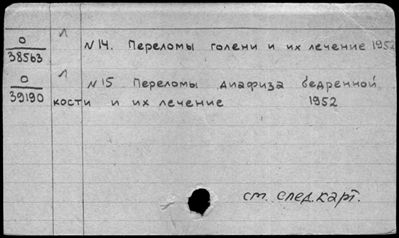 О
38563
1
N14. Переломы голени и их лечение 1952
О
39190
1
N15 Переломы диафиза бедренной
кости и их лечение 1952
см. след. карт.